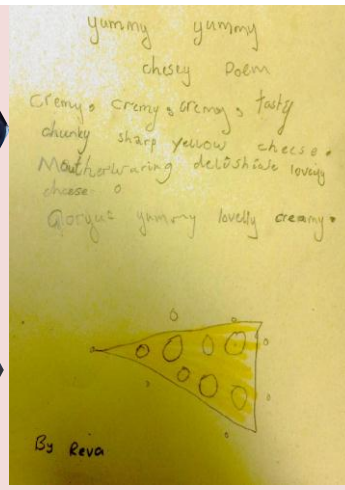 yummy yummy
chesey Poem
Cremy, cremy, cremy, tasty
chunky sharp yellow cheese.
Moutherwuring delishive lovely
cheese.
Goryus yummy lovelly creamy.
By Reva